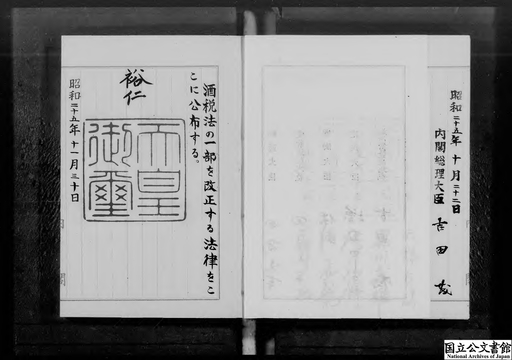 昭和二十五年十月二十二日
内閣総理大臣 吉田茂
酒税法の一部を改正する法律をこ
こに公布する。
裕仁
天皇
御璽
昭和二十五年十一月三十日
国立公文書館
National Archives of Japan